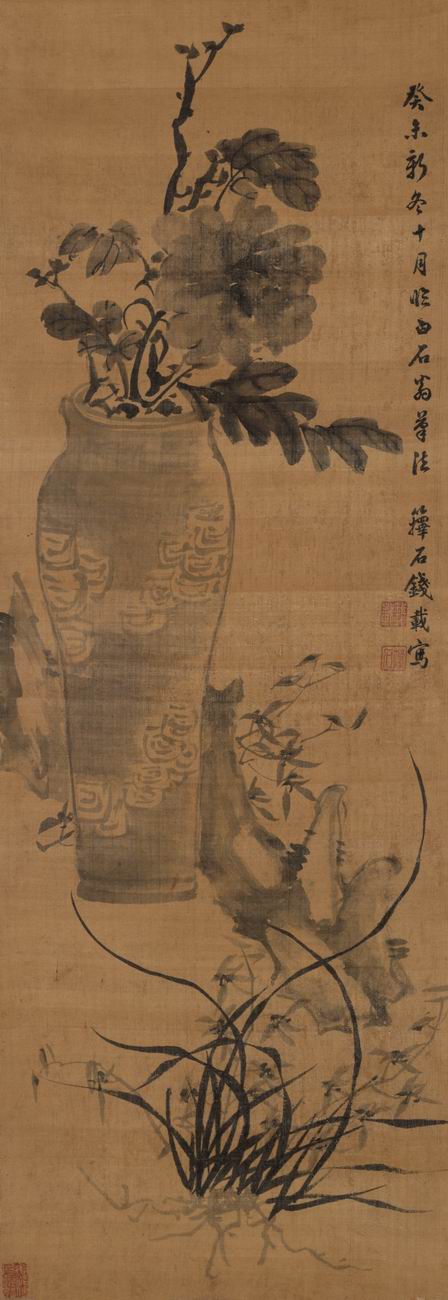 癸未新冬十月临白石翁筆法 籜石錢載寫